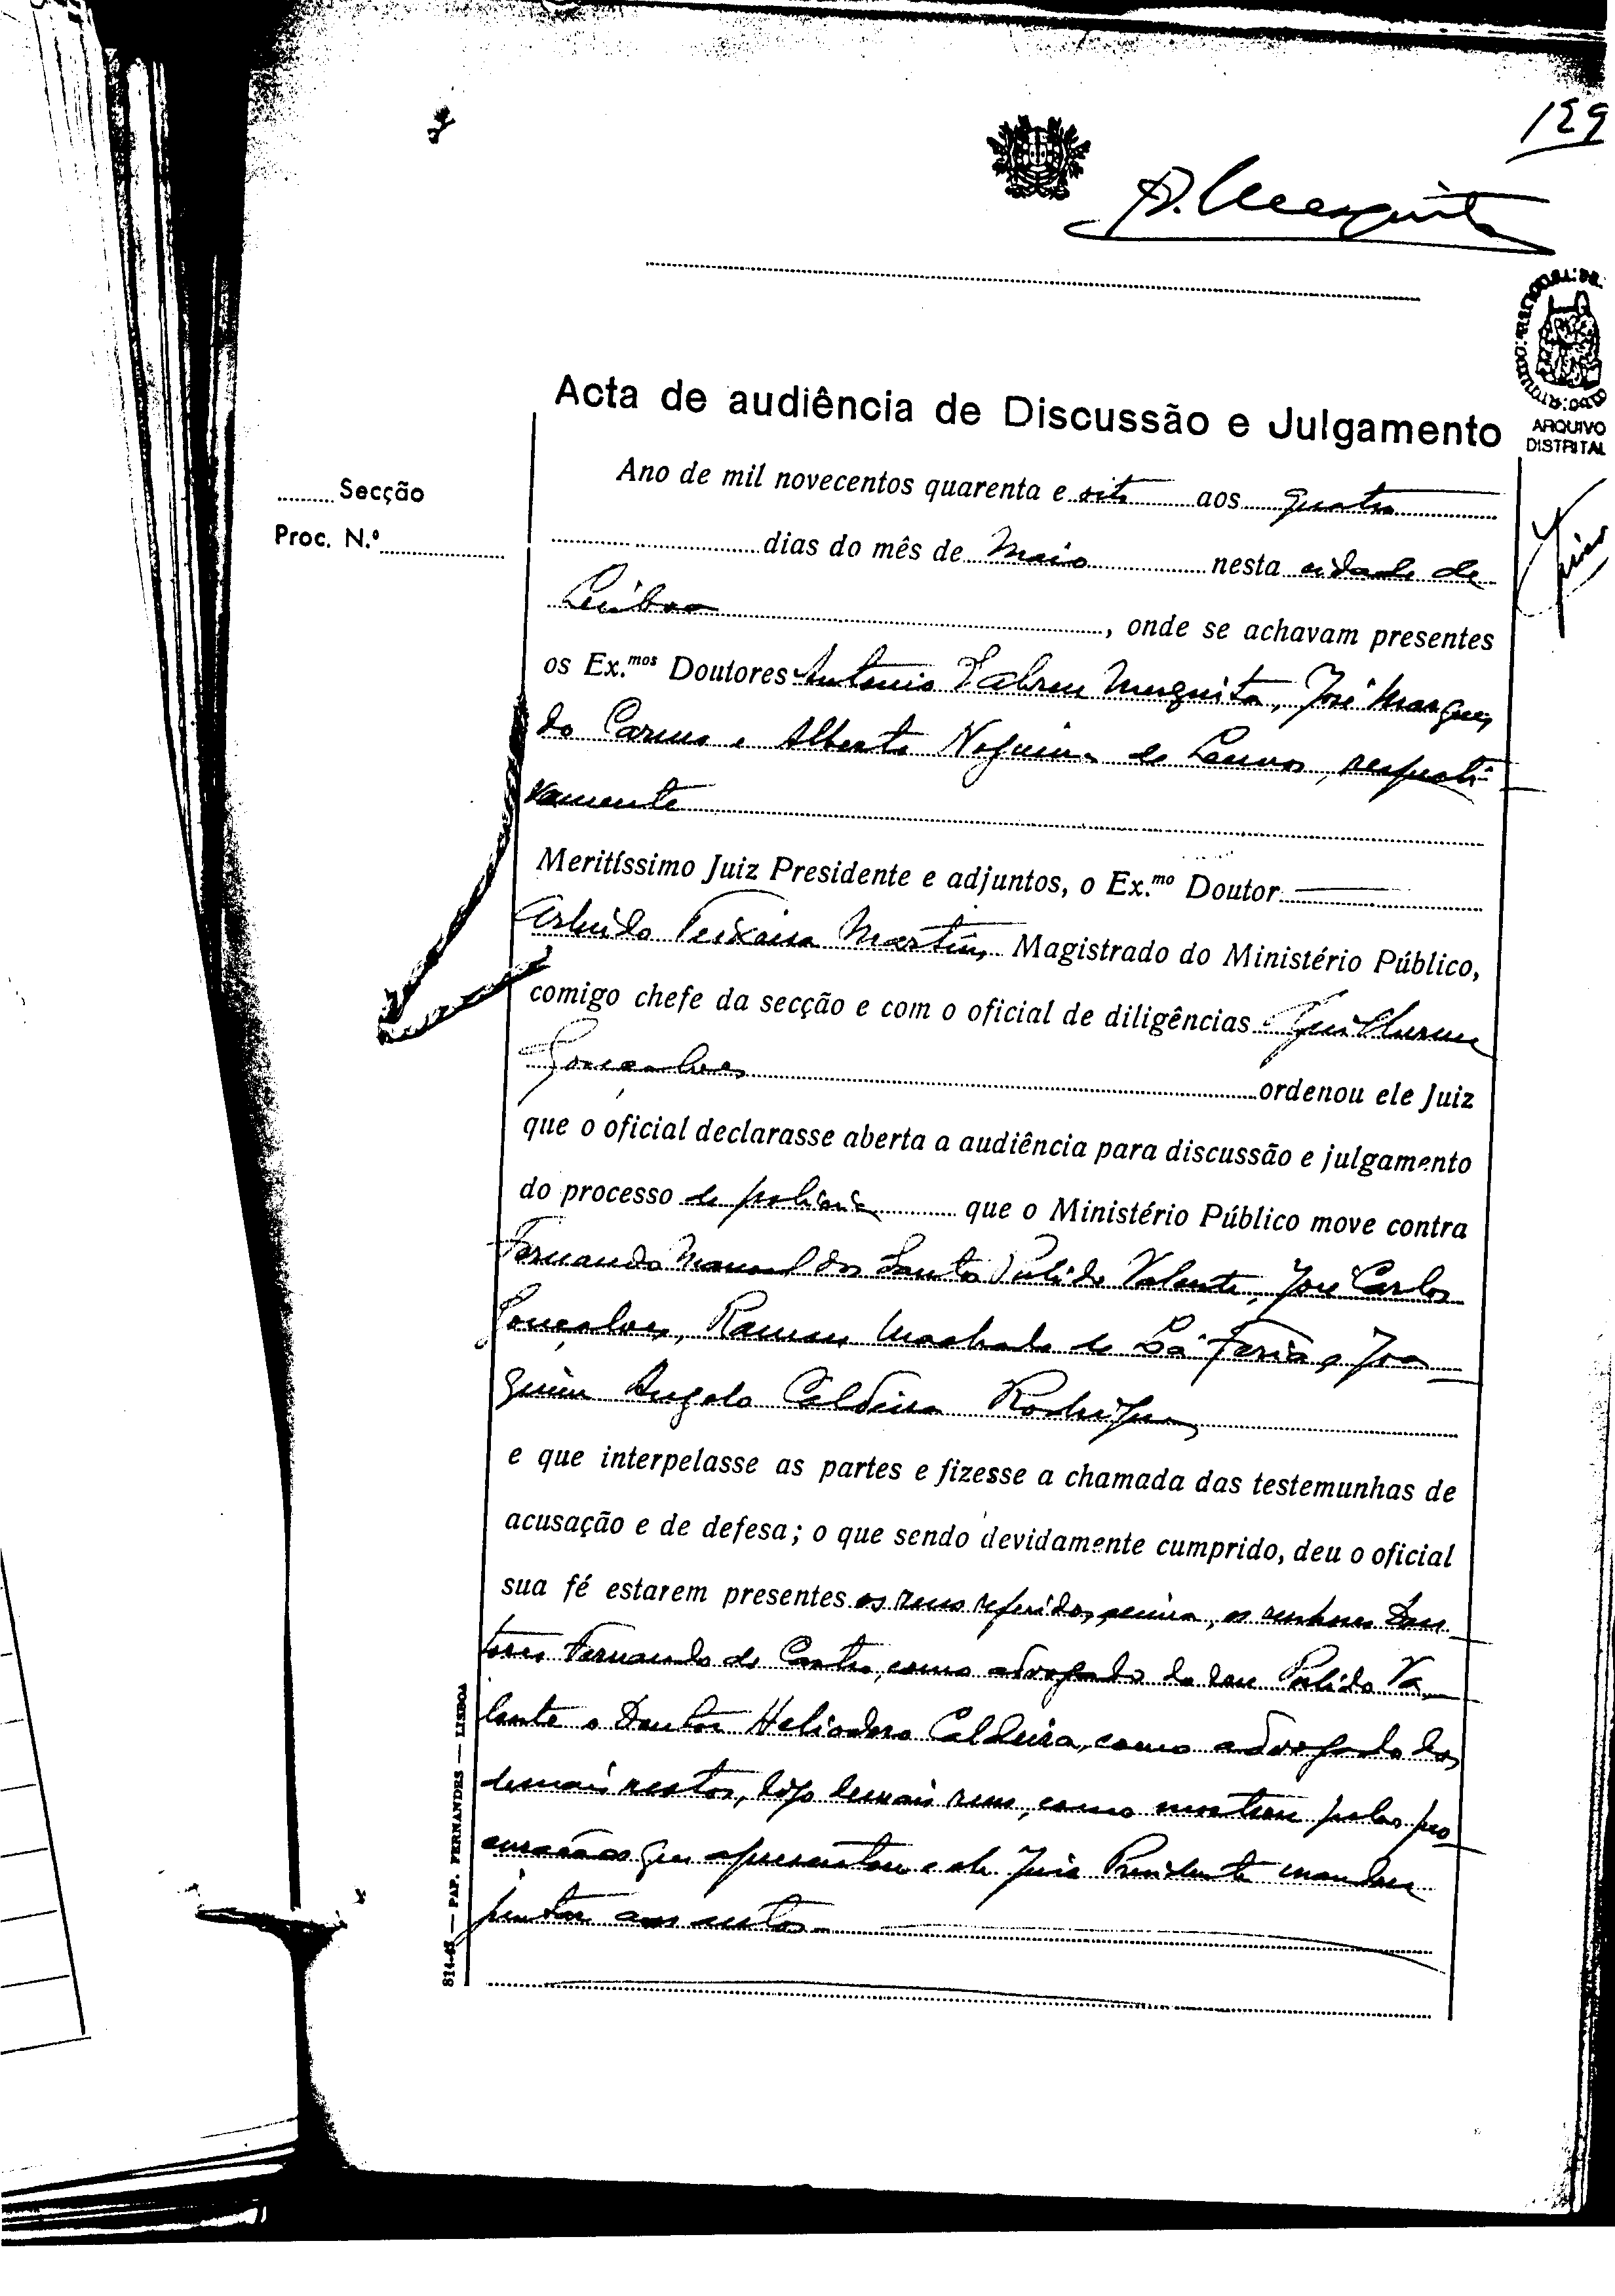 129
A. Mesquita
Acta de audiência de Discussão e Julgamento
ARQUIVO
DISTRITAL
Secção
Proc. N.º
Ano de mil novecentos quarenta e oito aos quatro
dias do mês de Maio nesta cidade de
Lisboa, onde se achavam presentes
os Ex.mos Doutores António d'Abreu Mesquita, José Marques
do Carmo e Alberto Nogueira de Lemos, respecti-
vamente
Meritíssimo Juiz Presidente e adjuntos, o Ex.mo Doutor
Arlindo Teixeira Martins Magistrado do Ministério Público,
comigo chefe da secção e com o oficial de diligências Guilherme
Gonçalves ordenou ele Juiz
que o oficial declarasse aberta a audiência para discussão e julgamento
do processo de polícia que o Ministério Público move contra
Fernando Manuel dos Santos Pulido Valente, José Carlos
Gonçalves, Ramos Machado de Lá Feria e Joa
quim Angelo Caldeira Rodrigues
e que interpelasse as partes e fizesse a chamada das testemunhas de
acusação e de defesa; o que sendo devidamente cumprido, deu o oficial
sua fé estarem presentes os reus referidos acima, os senhores Dou
tores Fernando de Castro, como advogado do reu Pulido Va
lente e Doutor Heliodoro Caldeira, como advogado dos
demais restos, digo demais reus, como mostrou pelas pro
curações que apresentou e ele Juiz Presidente mandou
juntar aos autos
814-48 — PAP. FERNANDES — LISBOA